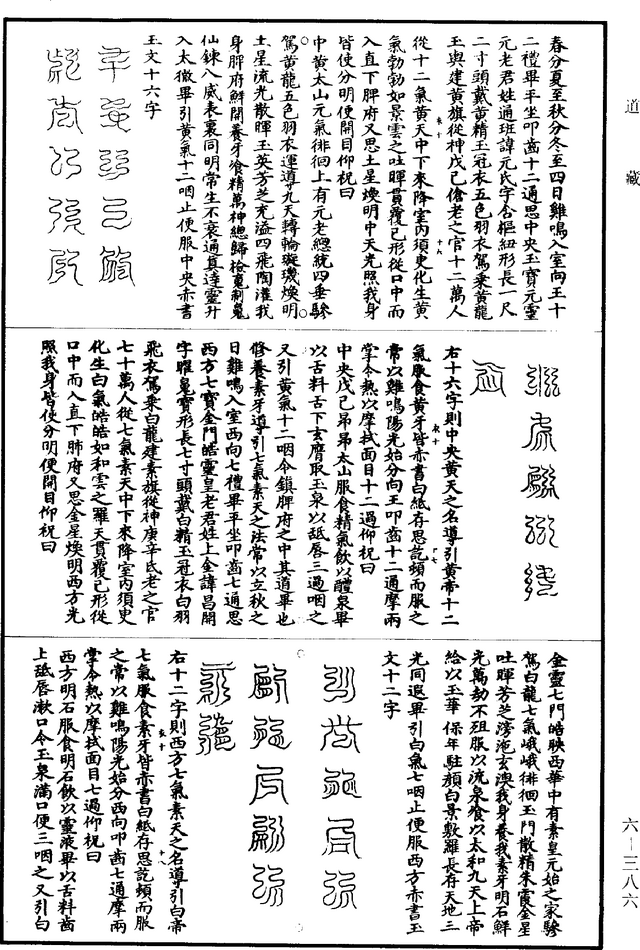 道藏
春分夏至秋分冬至四日雞鳴入室向王十
二禮畢平坐叩齒十二通思中央玉寶元靈
元老君姓通班諱元氏字含樞紐形長一尺
二寸頭戴黃精玉冠衣五色羽衣駕乘黃龍
玉輿建黃旗從神戊己倉老之官十二萬人
從十二氣黃天中下來降室內須臾化生黃
氣勃勃如景雲之吐暉貫覆己形從口中而
入直下脾府又思土星煥明中天光照我身
皆使分明便開目仰祝曰
中黃太山元氣徘徊上有元老總統四垂驂
駕黃龍五色羽衣運導九天轉輪璇璣煥明
土星流光散暉玉英芳芝充溢四飛陶灌我
身脾府鮮開養牙飡精萬神總歸檢魂制魄
仙鍊八威表裏同明常生不衰通真達靈升
入太微畢引黃氣十二咽止便服中央赤書
玉文十六字
右十六字則中央黃天之名導引黃帝十二
氣服食黃牙皆赤書白紙存思訖頓而服之
常以雞鳴陽光始分向王叩齒十二通摩兩
掌令熱以摩拭面目十二過仰祝曰
中央戊己昂昂太山服食精氣飲以醴泉畢
以舌料舌下玄膺取玉泉以舐唇三過咽之
又引黃氣十二咽令鎮脾府之中其道畢也
修養素牙導引七氣素天之法常以立秋之
日雞鳴入室西向七禮畢平坐叩齒七通思
西方七寶金門皓靈皇老君姓上金諱昌開
字曜魄寶形長七寸頭戴白精玉冠衣白羽
飛衣駕乘白龍建素旗從神庚辛氐老之官
七十萬人從七氣素天中下來降室內須臾
化生白氣皓皓如和雲之羅天貫覆己形從
口中而入直下肺府又思金星煥明西方光
照我身皆使分明便開目仰祝曰
金靈七門皓映西華中有素皇元始之家驂
駕白龍七氣峨峨徘徊玉門散精朱霞金星
吐暉芳芝滂沲玄澳我身養我素牙明石鮮
光萬劫不徂服以流泉飡以太和九天上帝
給以玉華保年駐顏白景敷羅長存天地三
光同遐畢引白氣七咽止便服西方赤書玉
文十二字
右十二字則西方七氣素天之名導引白帝
七氣服食素牙皆赤書白紙存思訖頓而服
之常以雞鳴陽光始分西向叩齒七通摩兩
掌令熱以摩拭面目七過仰祝曰
西方明石服食明石飲以靈液畢以舌料齒
上舐唇漱口令玉泉滿口便三咽之又引白
六—三八六